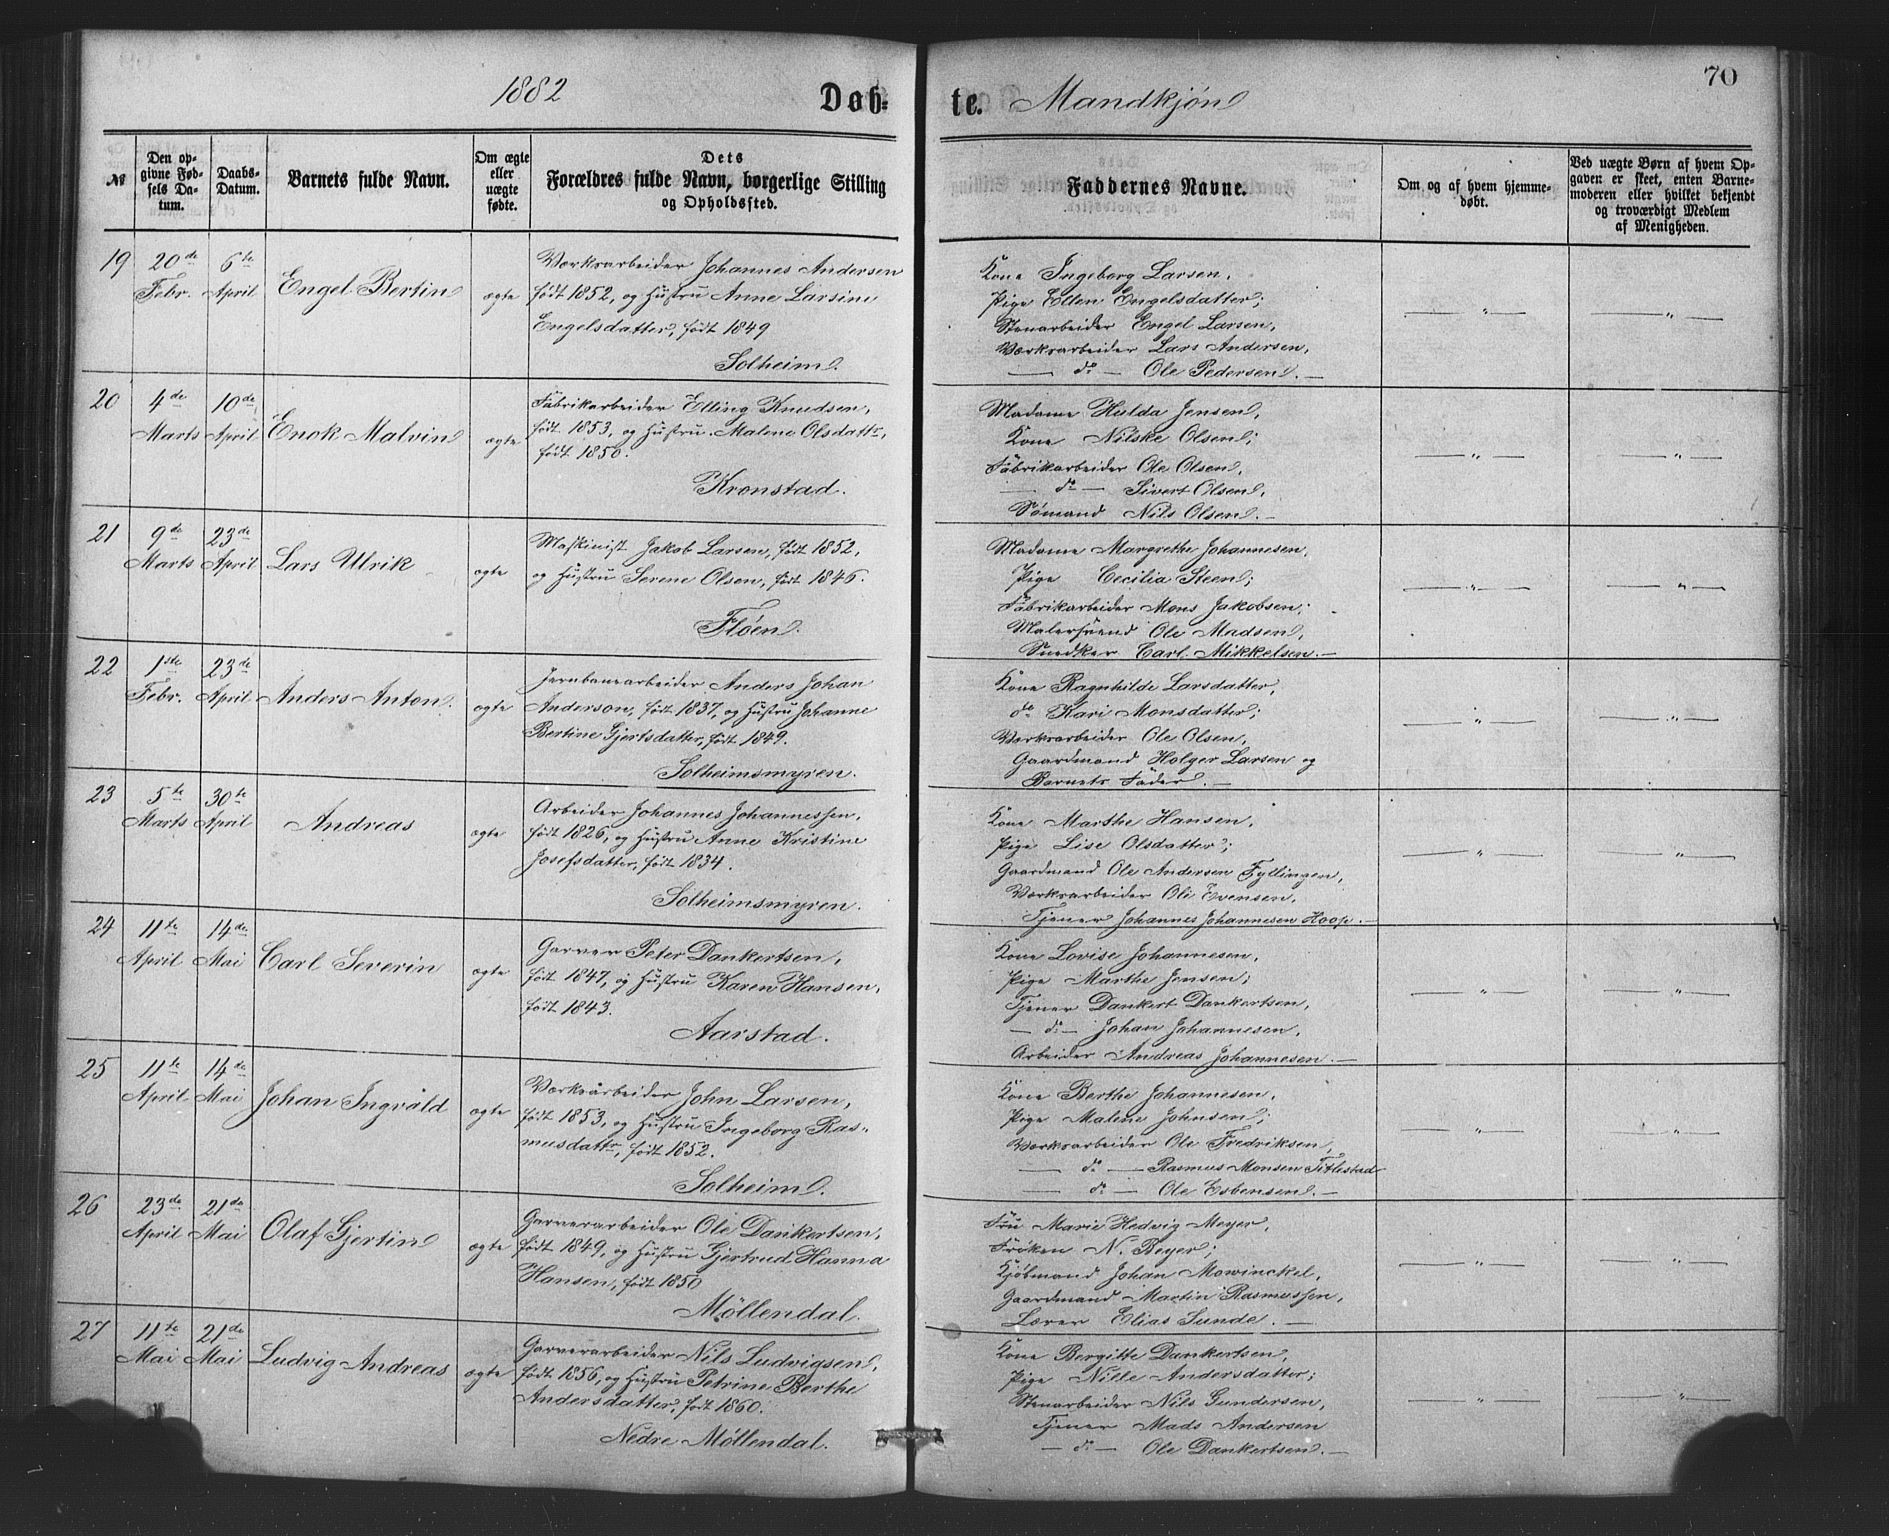 1882
Døb-
te.
Mandkjøn
70
№
Den op-
givne Fød-
sels Da-
tum.
Daabs-
Datum.
Barnets fulde Navn.
Om ægte
eller
uægte
fødte.
Dets
Forældres fulde Navn, borgerlige Stilling
og Opholdssted.
Faddernes Navne.
Om og af hvem hjemme-
døbt.
Ved uægte Børn af hvem Op-
gaven er skeet, enten Barne-
moderen eller hvilket bekjendt
og troværdigt Medlem
af Menigheden.
19
20de
Febr.
6te
April
Engel Bertin
ægte
Værksarbeider Johannes Andersen
født 1852, og Hustru Anne Larsine
Engelsdatter, født 1849
Solheim.
Kone Ingeborg Larsen,
Pige Ellen Engelsdatter;
Stenarbeider Engel Larsen,
Værksarbeider Lars Andersen,
— do — Ole Pedersen. —
— " —
— " —
20
4de
Marts
10de
April
Enok Malvin
ægte
Fabrikarbeider Elling Knudsen,
født 1853, og Hustru Malene Olsdattr,
født 1850.
Kronstad.
Madame Hulda Jensen,
Kone Nilske Olsen;
Fabrikarbeider Ole Olsen,
— do — Sivert Olsen,
Sømand Nils Olsen. —
— " —
— " —
21
9de
Marts
23de
April
Lars Ulrik
ægte
Maskinist Jakob Larsen, født 1852,
og Hustru Serene Olsen, født 1846.
Fløen.
Madame Margrethe Johannesen,
Pige Cecilia Steen;
Fabrikarbeider Mons Jakobsen,
Malersvend Ole Madsen,
Snedker Carl Mikkelsen. —
— " —
— " —
22
1ste
Febr.
23de
April
Anders Anton.
ægte
Jernbanearbeider Anders Johan
Anderson, født 1837, og Hustru Johanne
Bertine Gjertsdatter, født 1849.
Solheimsmyren.
Kone Ragnhilde Larsdatter,
do Kari Monsdatter;
Værksarbeider Ole Olsen,
Gaardmand Holger Larsen og
Barnets Fader. —
— " —
— " —
23
5te
Marts
30te
April
Andreas
ægte
Arbeider Johannes Johannessen,
født 1826, og Hustru Anne Kristine
Josefsdatter, født 1834.
Solheimsmyren.
Kone Marthe Hansen,
Pige Lise Olsdatter;
Gaardmand Ole Andersen Fyllingen,
Værksarbeider Oli Evensen,
Tjener Johannes Johannesen Hoop. —
— " —
— " —
24
11te
April
14de
Mai
Carl Severin
ægte
Garver Peter Dankertsen,
født 1847, og Hustru Karen Hansen,
født 1843.
Aarstad.
Kone Lovise Johannesen,
Pige Marthe Jensen;
Tjener Dankert Dankertsen,
— do — Johan Johannesen,
Arbeider Andreas Johannesen. —
— " —
— " —
25
11te
April
14de
Mai
Johan Ingvald
ægte
Værksarbeider John Larsen,
født 1853, og Hustru Ingeborg Ras-
musdattr, født 1852.
Solheim.
Kone Berthe Johannesen,
Pige Malene Johnsen;
Værksarbeider Ole Fredriksen,
— do — Rasmus Monsen Titlestad
— do — Ole Esbensen. —
— " —
— " —
26
23de
April
21de
Mai
Olaf Gjertin
ægte
Garverarbeider Ole Dankertsen,
født 1849, og Hustru Gjertrud Hanna
Hansen, født 1850
Møllendal.
Fru Marie Hedvig Meyer,
Frøken N. Beyer;
Kjøbmand Johan Mowinckel,
Gaardmand Martin Rasmussen,
Lærer Elias Sunde. —
— " —
— " —
27
11te
Mai
21de
Mai
Ludvig Andreas
ægte
Garverarbeider Nils Ludvigsen,
født 1856, og Hustru Petrine Berthe
Andersdatter, født 1860.
Nedre Møllendal.
Kone Bergitte Dankertsen,
Pige Nille Andersdatter;
Stenarbeider Nils Gundersen,
Tjener Mads Andersen
— do — Ole Dankertsen. —
— " —
— " —